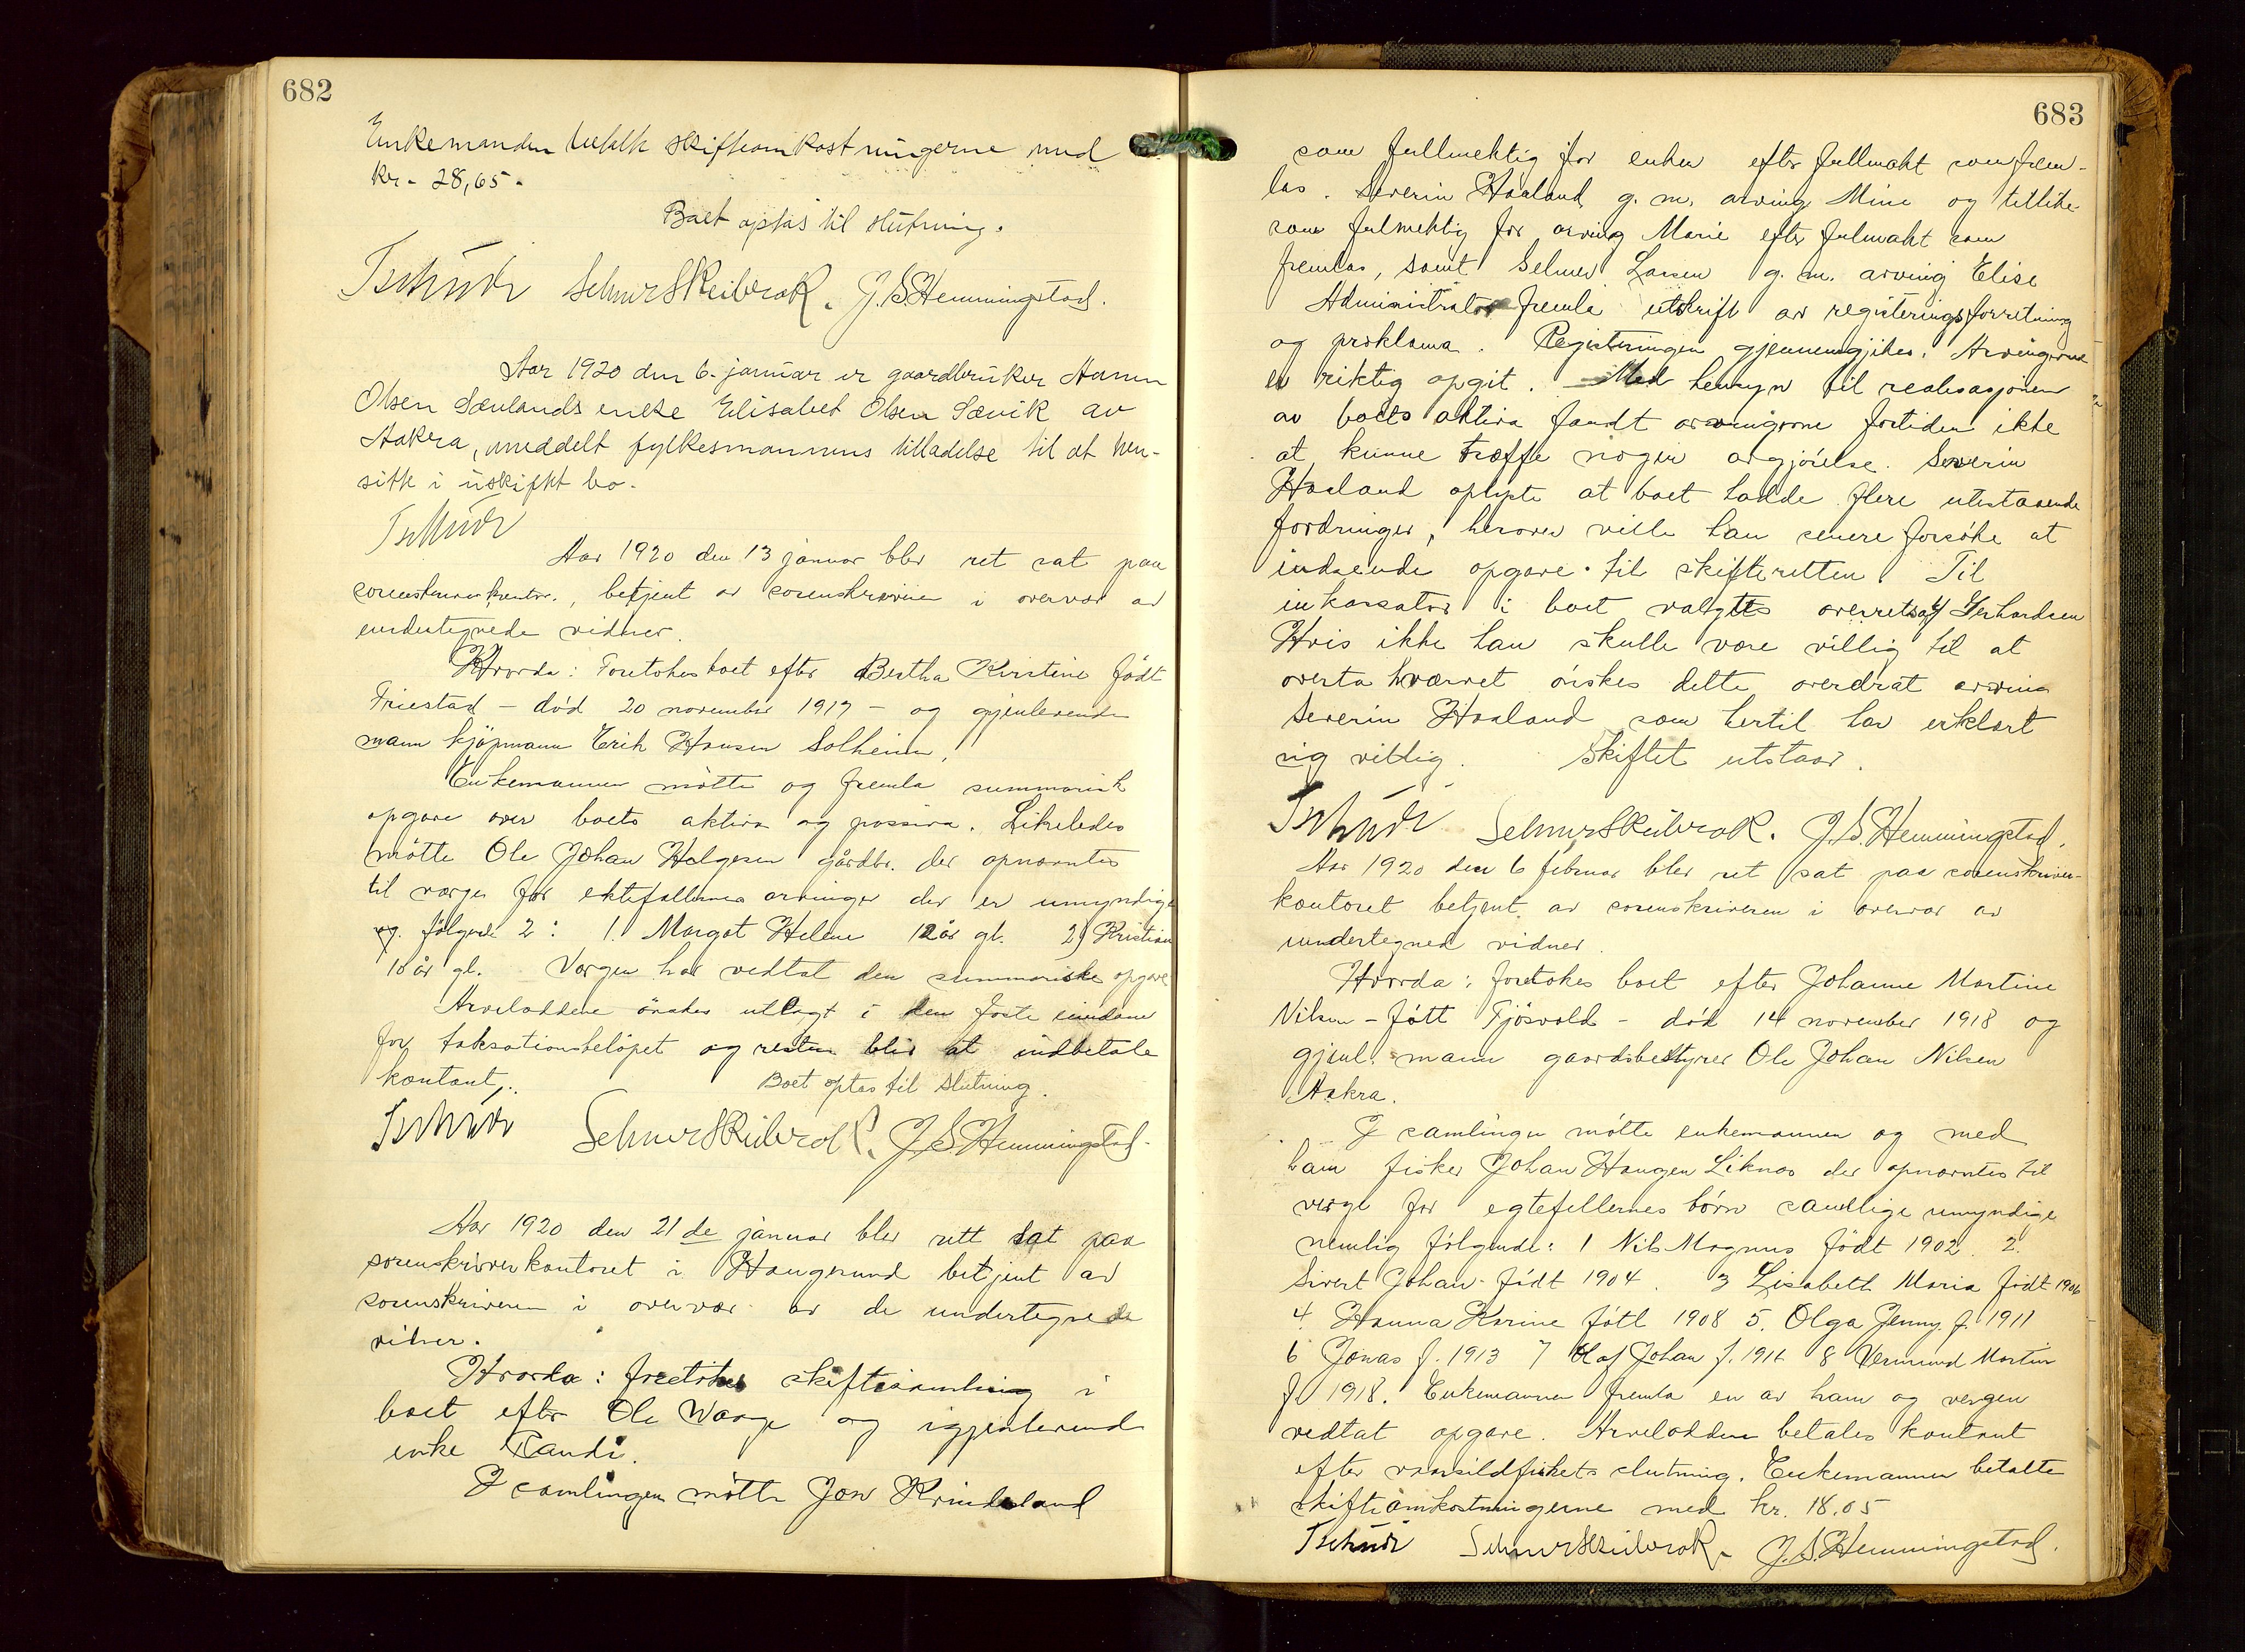 682
Enkemanden betalte skifteomkostningerne med
kr. 28,65.
Boet optas til slutning.
Tschudi Selmer Skeibrok. J. S. Hemmingstad.
Aar 1920 den 6. januar er gaardbruker Hamn
Olsen Sævlands enke Elisabet Olsen Sævik av
Aakra, meddelt fylkesmannens tilladelse til at hen-
sitte i uskiftet bo.
Tschudi
Aar 1920 den 13 januar blev ret sat paa
sorenskriverkontor., betjent av sorenskriveren i overvær av
undertegnede vidner.
Hvorda: Foretokes boet efter Bertha Kirstine født
Friestad - død 20 november 1917 - og gjenlevende
mann kjøpmann Erik Hansen Solheim.
Enkemannen møtte og fremla summarisk
opgave over boets aktiva og passiva. Likeledes
møtte Ole Johan Helgesen gårdbr. der opnævntes
til verge for ektefellernes arvinger der er umyndige
og følgende 2: 1. Margot Helene 12 år gl. 2) Kristian
10 år gl. Vergen har vedtat den summariske opgave
Arveloddene ønskes utlagt i den faste eiendom
for taksationsbeløpet og resten blir at indbetale
kontant. Boet optas til slutning.
Tschudi Selmer Skeibrok. J. S. Hemmingstad.
Aar 1920 den 21de januar blev rett sat paa
sorenskriverkontoret i Haugesund betjent av
sorenskriveren i overvær av de undertegnede
vidner.
Hvorda: foretokes skiftesamling i
boet efter Ole Waage og igjenlevende
enke Randi.
I samlingen møtte Jon Kvindesland
683
som fullmektig for enken efter fullmakt som frem-
las. Severin Haaland g. m. arving Mine og tillike
som fulmektig for arving Marie efter fulmakt som
fremlas, samt Selmer Larsen g. m. arving Elise
Administrator fremla utskrift av registeringsforretning
og proklama. Registeringen gjennemgikes. Arvingerne
er riktig opgit. Med hensyn til realisasjonen
av boets aktiva fandt arvingerne fortiden ikke
at kunne træffe nogen avgjørelse. Severin
Haaland oplyste at boet hadde flere utestaaende
fordringer, herover ville han senere forsøke at
indsende opgave til skifteretten. Til
inkassator i boet valgtes overretssakf Gerhardsen
Hvis ikke han skulle være villig til at
overta hvervet ønskes dette overdrat arving
Severin Haaland som hertil har erklært
sig villig. Skiftet utstaar.
Tschudi Selmer Skeibrok. J. S. Hemmingstad.
Aar 1920 den 6 februar blev ret sat paa sorenskriver-
kontoret betjent av sorenskriveren i overvær av
undertegned vidner.
Hvorda: foretokes boet efter Johanne Martine
Nilsen - føtt Tjøsvold - død 14 november 1918 og
gjenl. mann gaardsbestyrer Ole Johan Nilsen
Aakra.
I samlingen møtte enkemannen og med
ham fisker Johan Haugen Liknes der opnævntes til
verge for egtefellernes børn samtlige umyndige
nemlig følgende: 1 Nils Magnus født 1902. 2.
Sivert Johan født 1904. 3 Lisabeth Maria født 1906
4. Hanna Karine føtt 1908 5. Olga Jenny f. 1911
6 Jonas f. 1913 7 Olaf Johan f. 1916 8 Vermund Martin
f. 1918. Enkemannen fremla en av ham og vergen
vedtat opgave. Arvelodden betales kontant
efter vaarsildfiskets slutning. Enkemannen betalte
skifteomkostningerne med kr. 18.05
Tschudi Selmer Skeibrok. J. S. Hemmingstad.